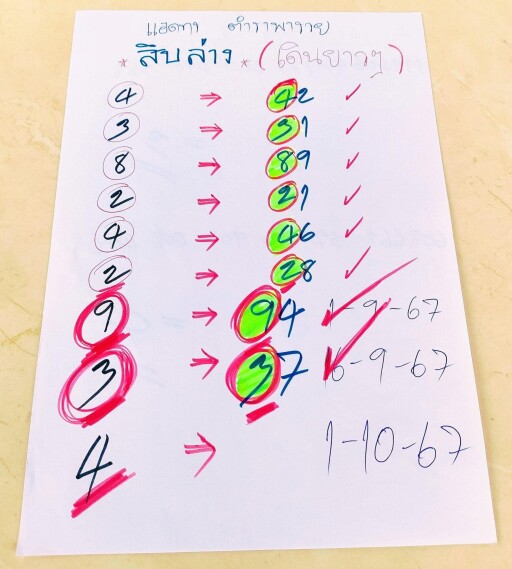 แสดาา ตำราพารวย
* สิบล่าง * (เดินยาวๆ)
4 ⇒ 42 ✓
3 ⇒ 31 ✓
8 ⇒ 89 ✓
2 ⇒ 21 ✓
4 ⇒ 46 ✓
2 ⇒ 28 ✓
9 ⇒ 94 ✓ 1-9-67
3 ⇒ 37 ✓ 16-9-67
4 ⇒ 1-10-67